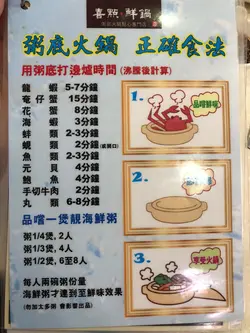 喜點鮮鍋
粥底火鍋 正確食法
用粥底打邊爐時間 (沸騰後計算)
龍 蝦 5-7分鐘
奄仔蟹 15分鐘
花 蟹 8分鐘
海 蝦 3分鐘
蚌 類 2-3分鐘
蜆 類 2分鐘(或開口)
魚 類 3分鐘
元 貝 4分鐘
鮑 魚 4分鐘
手切牛肉 2分鐘
丸 類 6-8分鐘
品嚐一煲靚海鮮粥
粥1/4煲, 2人
粥1/3煲, 4人
粥1/2煲, 6至8人
每人兩碗粥份量
海鮮粥才達到至鮮味效果
(勿加太多粥 會影響出品)
1.
品嚐鮮味
2.
3.
享受火鍋